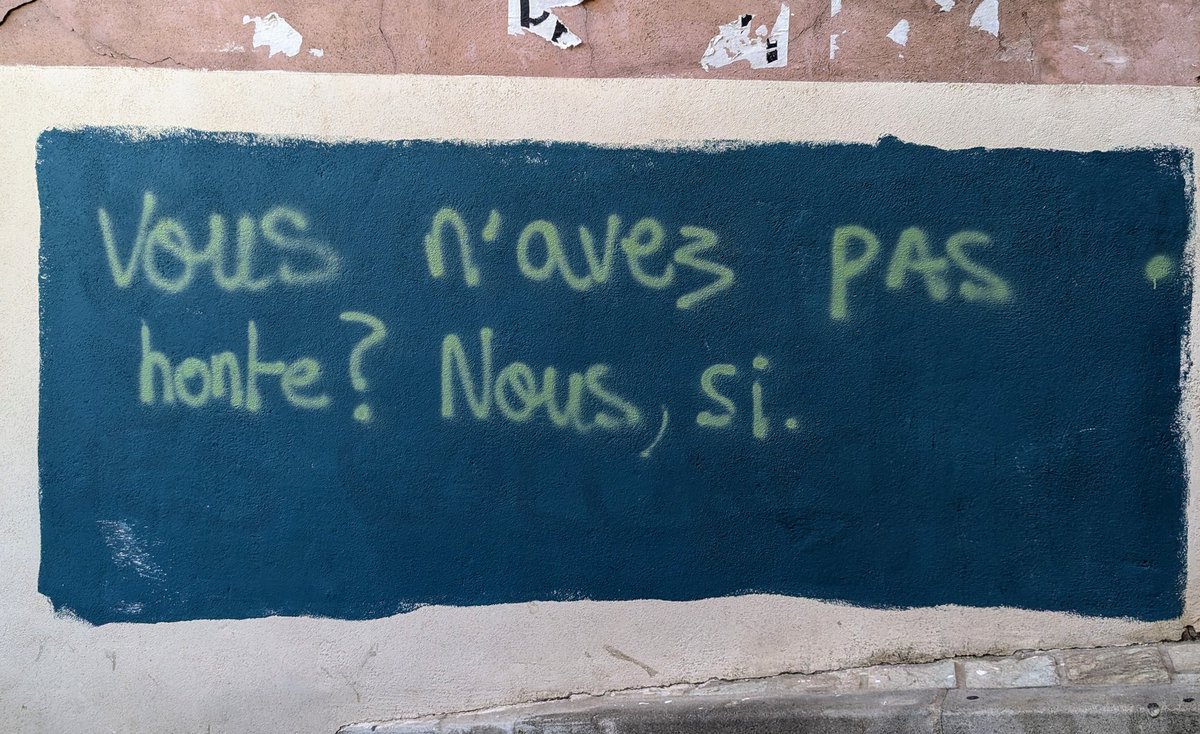 Vous n'avez pAs
honte? Nous, si.